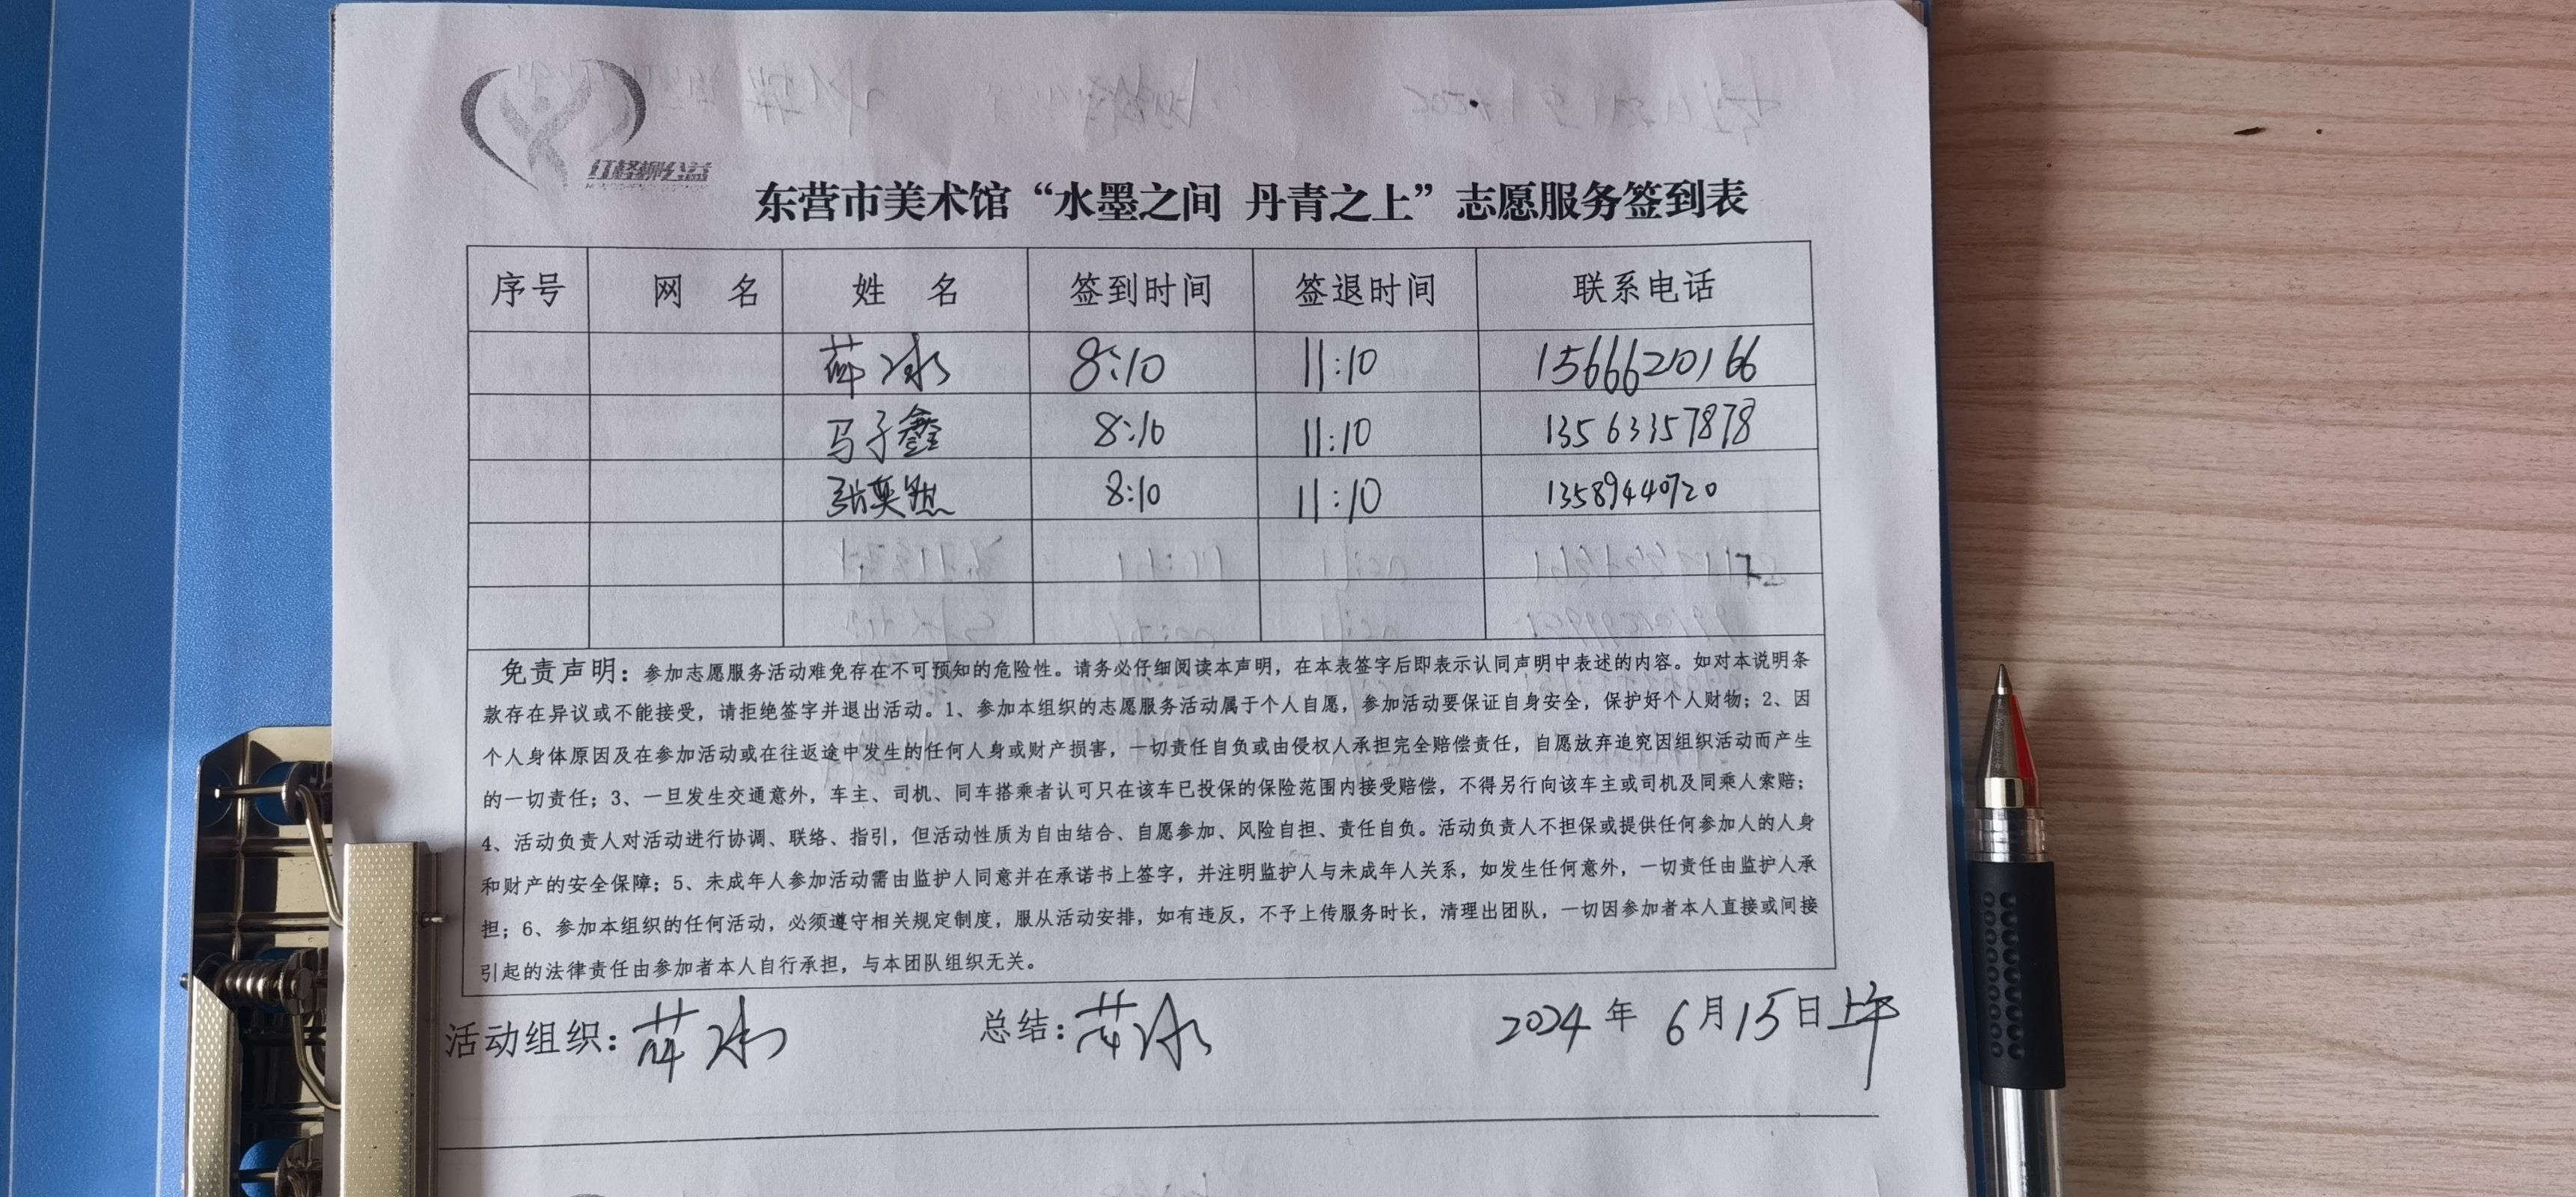 红柽柳公益
东营市美术馆“水墨之间 丹青之上”志愿服务签到表
序号 网 名 姓 名 签到时间 签退时间 联系电话
薛冰 8:10 11:10 15666210166
马子鑫 8:10 11:10 13563357878
张奕然 8:10 11:10 13589440720
免责声明：参加志愿服务活动难免存在不可预知的危险性。请务必仔细阅读本声明，在本表签字后即表示认同声明中表述的内容。如对本说明条
款存在异议或不能接受，请拒绝签字并退出活动。1、参加本组织的志愿服务活动属于个人自愿，参加活动要保证自身安全，保护好个人财物；2、因
个人身体原因及在参加活动或在往返途中发生的任何人身或财产损害，一切责任自负或由侵权人承担完全赔偿责任，自愿放弃追究因组织活动而产生
的一切责任；3、一旦发生交通意外，车主、司机、同车搭乘者认可只在该车已投保的保险范围内接受赔偿，不得另行向该车主或司机及同乘人索赔；
4、活动负责人对活动进行协调、联络、指引，但活动性质为自由结合、自愿参加、风险自担、责任自负。活动负责人不担保或提供任何参加人的人身
和财产的安全保障；5、未成年人参加活动需由监护人同意并在承诺书上签字，并注明监护人与未成年人关系，如发生任何意外，一切责任由监护人承
担；6、参加本组织的任何活动，必须遵守相关规定制度，服从活动安排，如有违反，不予上传服务时长，清理出团队，一切因参加者本人直接或间接
引起的法律责任由参加者本人自行承担，与本团队组织无关。
活动组织：薛冰 总结：薛冰 2024年 6月15日上午